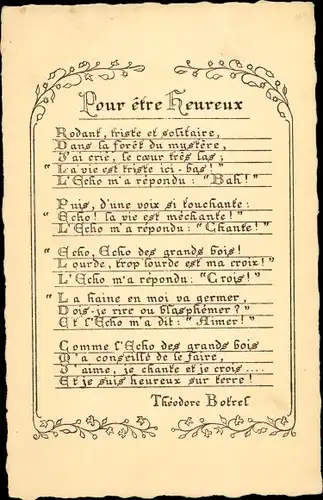 Pour être Heureux
Rodant, triste et solitaire,
Dans la forêt du mystère,
J'ai crié, le cœur très las ;
" La vie est triste ici - bas ! "
L'Echo m'a répondu : " Bah ! "
Puis, d'une voix si touchante :
" Echo ! la vie est méchante ! "
L'Echo m'a répondu : " Chante ! "
" Echo, Echo des grands bois !
Lourde, trop lourde est ma croix ! "
L'Echo m'a répondu : " Crois ! "
" La haine en moi va germer,
Dois-je rire ou blasphémer ? "
Et l'Echo m'a dit : " Aimer ! "
Comme l'Echo des grands bois
M'a conseillé de le faire,
J'aime, je chante et je crois ....
Et je suis heureux sur terre !
Théodore Botrel